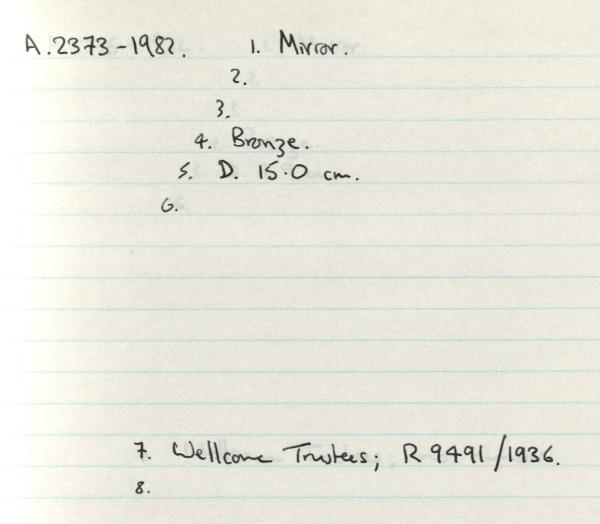 A.2373-1982. 1. Mirror.
2.
3.
4. Bronze.
5. D. 15.0 cm.
6.
7. Wellcome Trustees; R 9491/1936.
8.